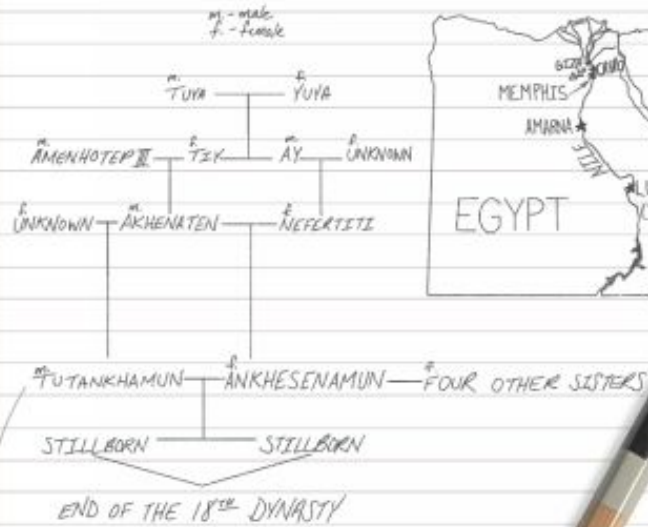 m. - male
f. - female
m. TUYA f. YUYA
m. AMENHOTEP III f. TIY m. AY f. UNKNOWN
f. UNKNOWN m. AKHENATEN f. NEFERTITI
m. TUTANKHAMUN f. ANKHESENAMUN f. FOUR OTHER SISTERS
STILLBORN STILLBORN
END OF THE 18TH DYNASTY
GIZA
CAIRO
MEMPHIS
AMARNA
NILE
EGYPT